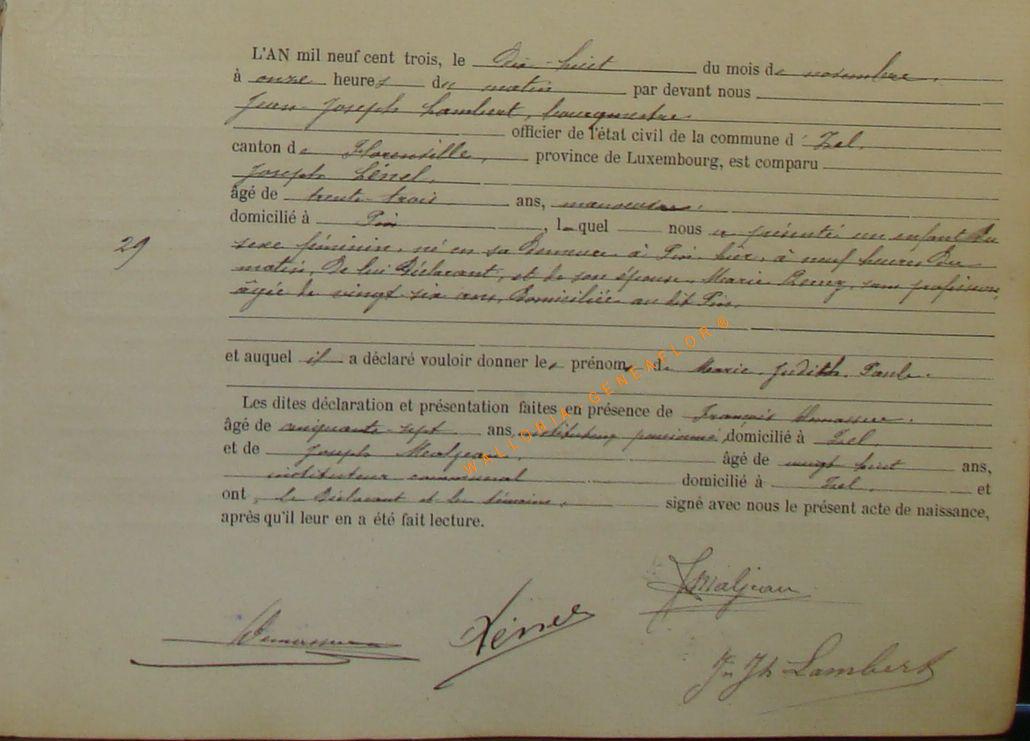 L'AN mil neuf cent trois, le dix-huit du mois de novembre,
à onze heures du matin par devant nous
Jean-Joseph Lambert, bourgmestre
officier de l'état civil de la commune d' Izel,
canton de Florenville, province de Luxembourg, est comparu
Joseph
âgé de trente-trois ans, manoeuvre,
domicilié à Pin, lequel nous a présenté un enfant du
29
sexe féminin, né en sa demeure à Pin hier, à neuf heures du
matin, de lui déclarant, et de son épouse Marie sans profession,
âgée de vingt-six ans, domiciliée au dit Pin,
et auquel il a déclaré vouloir donner les prénoms de Marie-Judith-Paule.
Les dites déclaration et présentation faites en présence de François
âgé de cinquante-sept ans, instituteur pensionné, domicilié à Izel,
et de Joseph Maljean, âgé de vingt-huit ans,
instituteur communal domicilié à Izel, et
ont, le déclarant et les témoins, signé avec nous le présent acte de naissance,
après qu'il leur en a été fait lecture.
WALLONIA GENEAFLOR®
J Maljean
Jn Jh Lambert